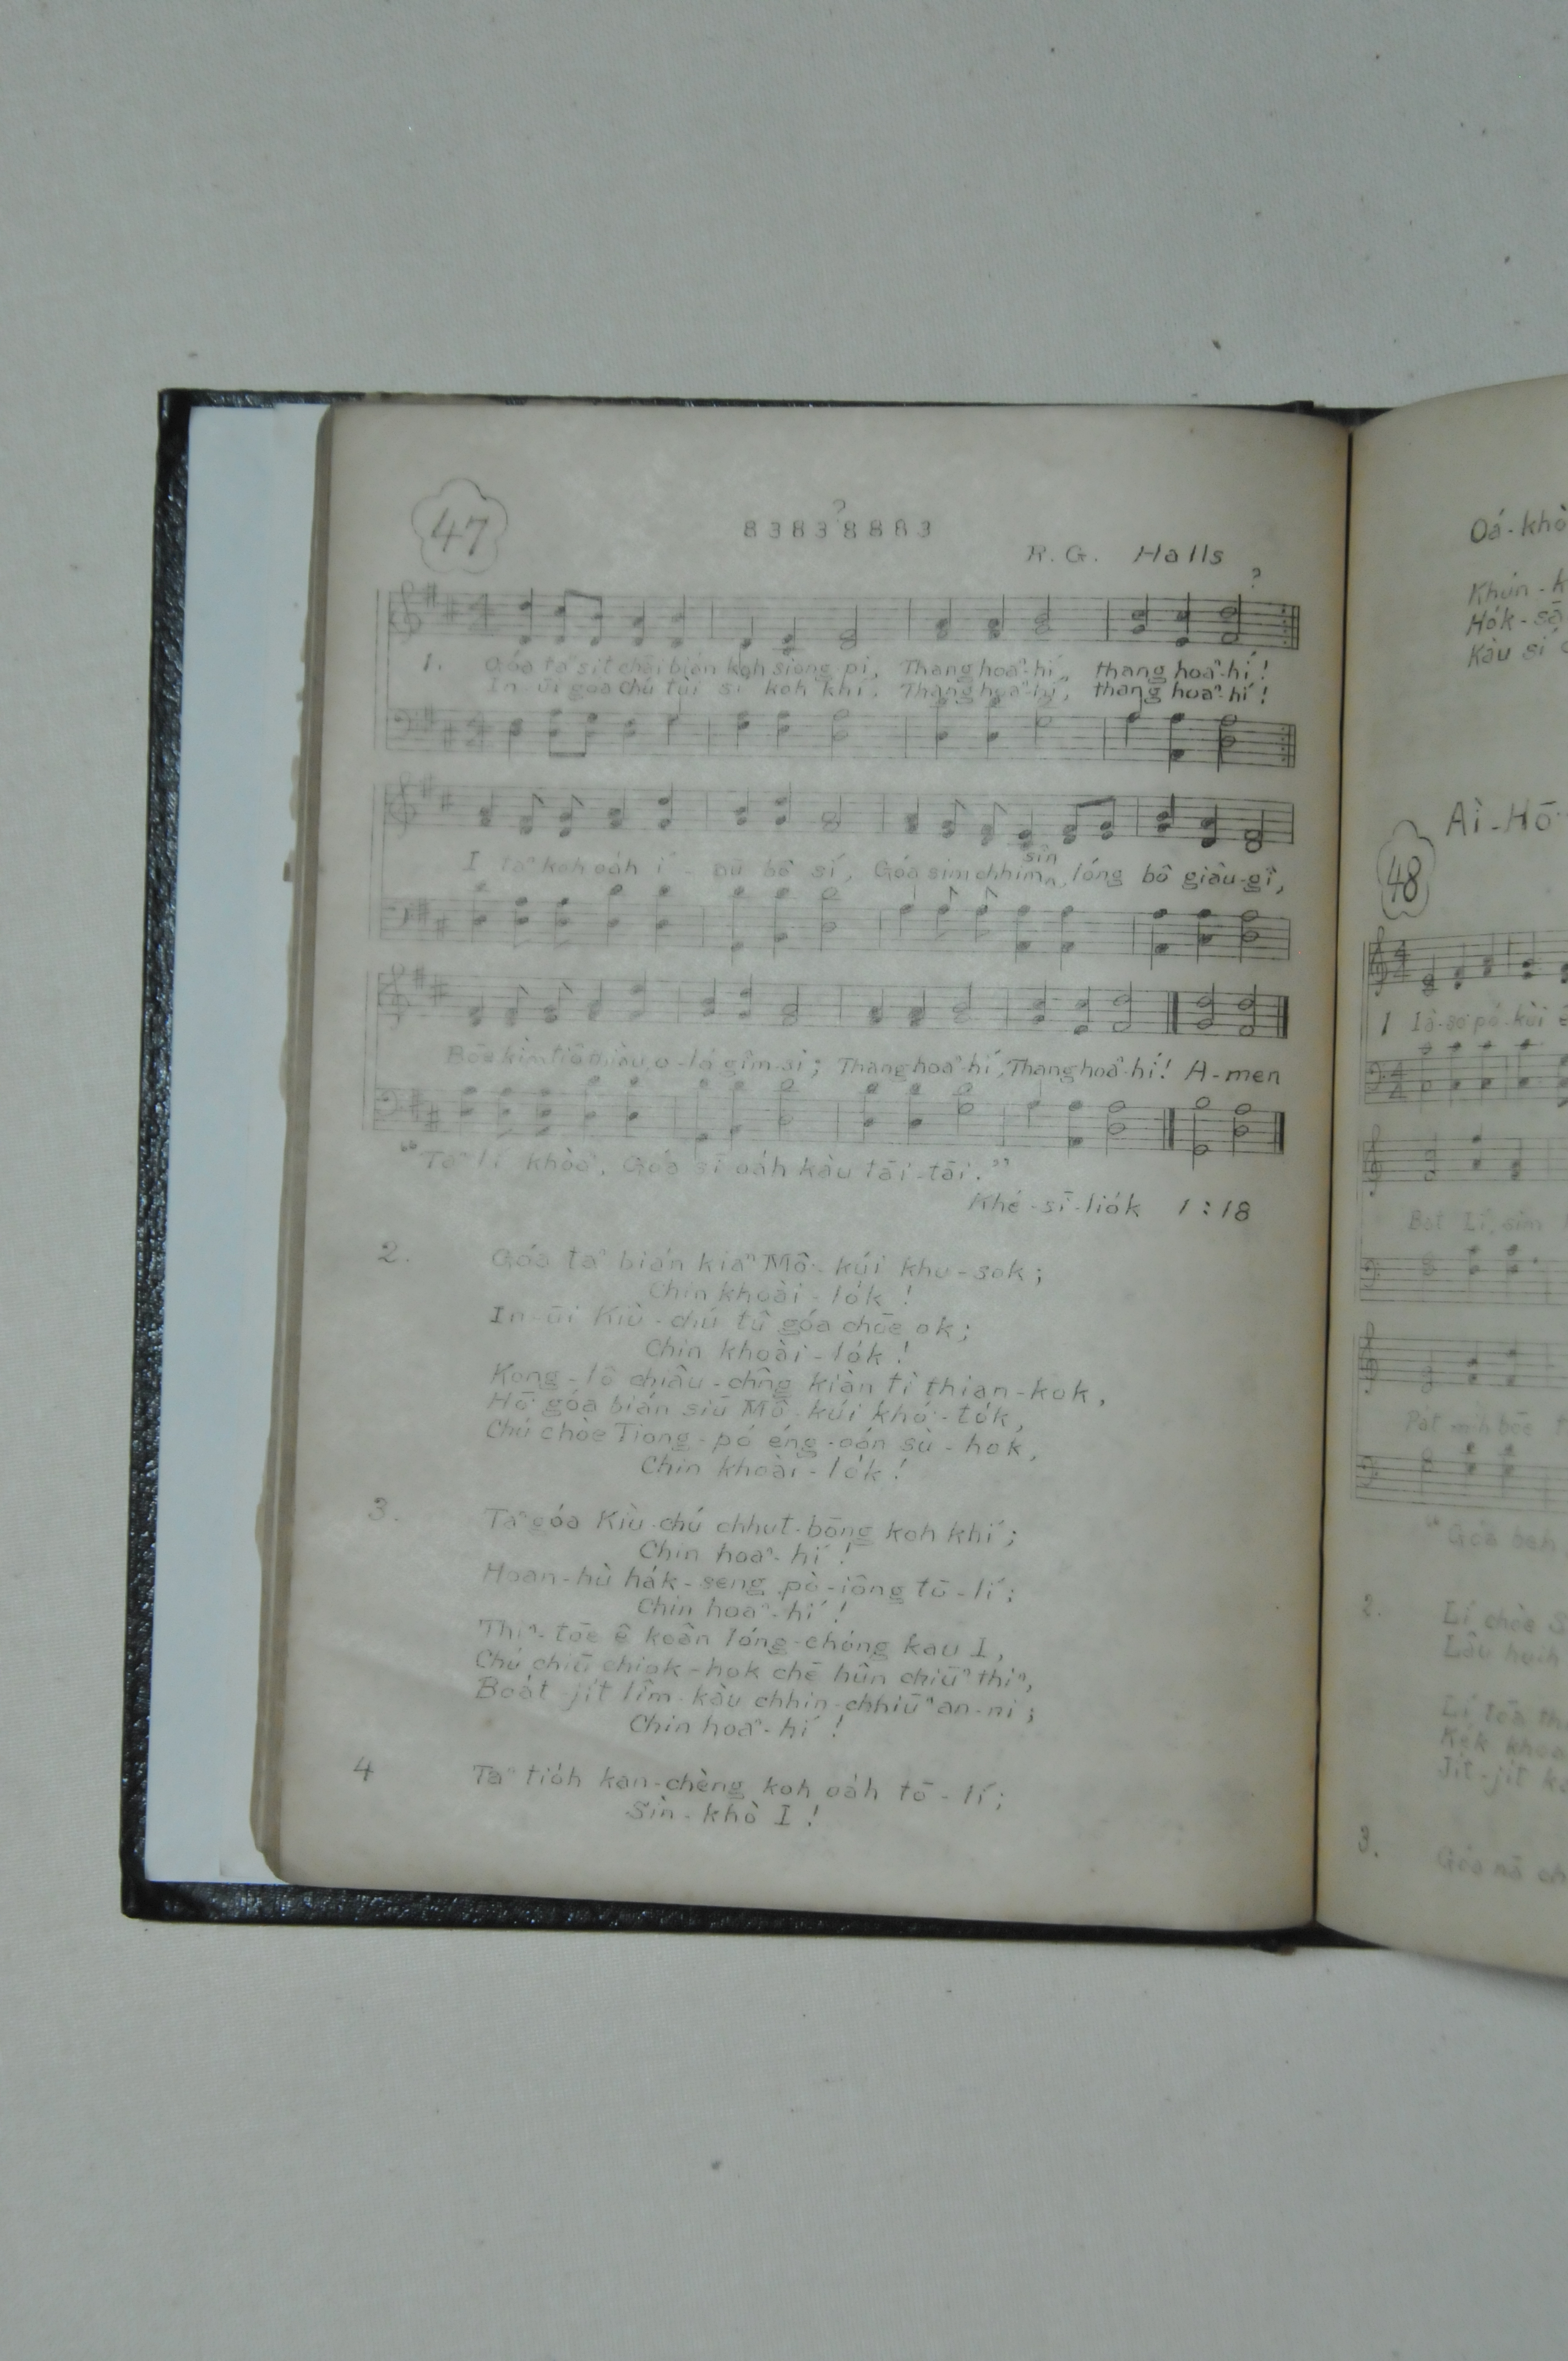 47
?
8 3 8 3 8 8 8 3
R. G. Halls
?
1. Góa taⁿ sit chāi bián koh siong-pi, Thang hoaⁿ-hí, thang hoaⁿ-hí!
In-ūi góa Chú tùi sí koh khí, Thang hoaⁿ-hí, thang hoaⁿ-hí!
sîn
I taⁿ koh oa̍h í - bô sí, Góa sim chhim lóng bô giâu-gî,
kìm tiō o-ló gîm-si; Thang hoaⁿ-hí, Thang hoaⁿ-hí! A-men
"Taⁿ lí khòaⁿ, Góa sī oa̍h kàu tāi-tāi."
Khé-sī-lio̍k 1:18
2. Góa taⁿ bián kiaⁿ Mô͘-kúi khu-sok;
Chin khoài-lo̍k!
In-ūi Kiù-chú tû góa chōe ok;
Chin khoài-lo̍k!
Kong-lô chiâu-chn̂g kiàn tì thian-kok,
Hō͘ góa bián siū Mô͘-kúi khó͘-to̍k,
Chú chòe Tiong-pó éng-oán sù-hok,
Chin khoài-lo̍k!
3. Taⁿ góa Kiù-chú chhut-bōng koh khí;
Chin hoaⁿ-hí!
Hoan-hù ha̍k-seng pò-iông tō-lí;
Chin hoaⁿ-hí!
Thiⁿ-tōe ê koân lóng-chóng kau I,
Chú chiū chiok-hok chē hûn chiūⁿ thiⁿ,
Boa̍t-ji̍t lîm-kàu chhin-chhiūⁿ an-ni;
Chin hoaⁿ-hí!
4 Taⁿ tio̍h kan-chèng koh oa̍h tō-lí;
Sìn-khò I!
Oá-khò
Khún-k
Ho̍k-sā
Kàu sí
Ai-Hō͘
48
1 Iâ-so͘ pó-kùi ê
Bat Lí, sim
Pa̍t mi̍h bōe
"Góa beh
2. Lí chòe S
Lâu huih
Lí tōa th
Kek khoa
Ji̍t-ji̍t k
3. Góa nā ch